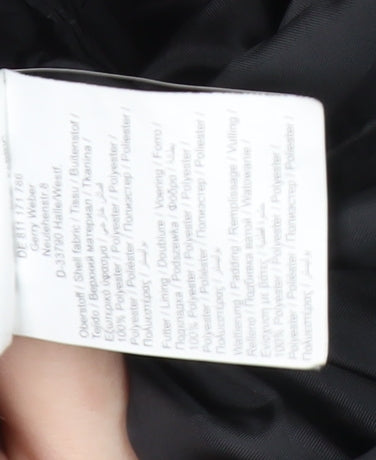 DE 811 171 786
Gerry Weber
Neulehenstr.8
D-33790 Halle/Westf.
Oberstoff / Shell fabric / Tissu / Buitenstof /
Tejido / Верхний материал / Tkanina /
Εξωτερικό ύφασμα /
100% Polyester / Polyester / Polyester /
Polyester / Poliéster / Полиэстер / Poliester /
Πολυεστέρας / بوليستر
Futter / Lining / Doublure / Voering / Forro /
Подкладка / Podszewka / Φόδρα / بطانة
100% Polyester / Polyester / Polyester /
Polyester / Poliéster / Полиэстер / Poliester /
Πολυεστέρας / بوليستر
Wattierung / Padding / Remplissage / Vulling /
Relleno / Подбивка ватой / Watowanie /
Ενίσχυση με βάτες /
100% Polyester / Polyester / Polyester /
Polyester / Poliéster / Полиэстер / Poliester /
Πολυεστέρας / بوليستر